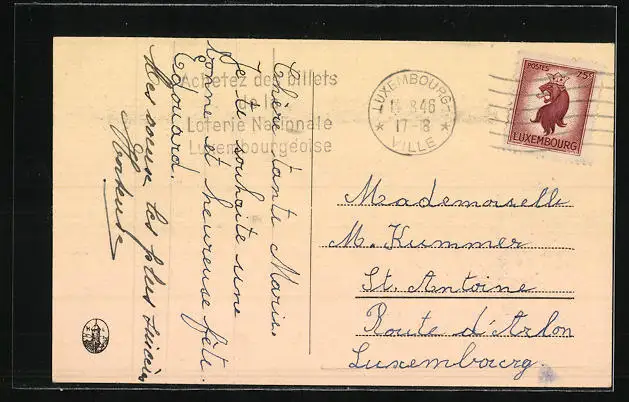 Chère tante Marie.
Je te souhaite une
bonne et heureuse fête.
Edouard.
Mes voeux les plus sincères
Hortense
Achetez des billets
de la
Loterie Nationale
Luxembourgeoise
LUXEMBOURG-
8.46
17-18
VILLE
POSTES 75c
LUXEMBOURG
Mademoiselle
M. Kummer
St. Antoine
Route d'Arlon
Luxembourg.